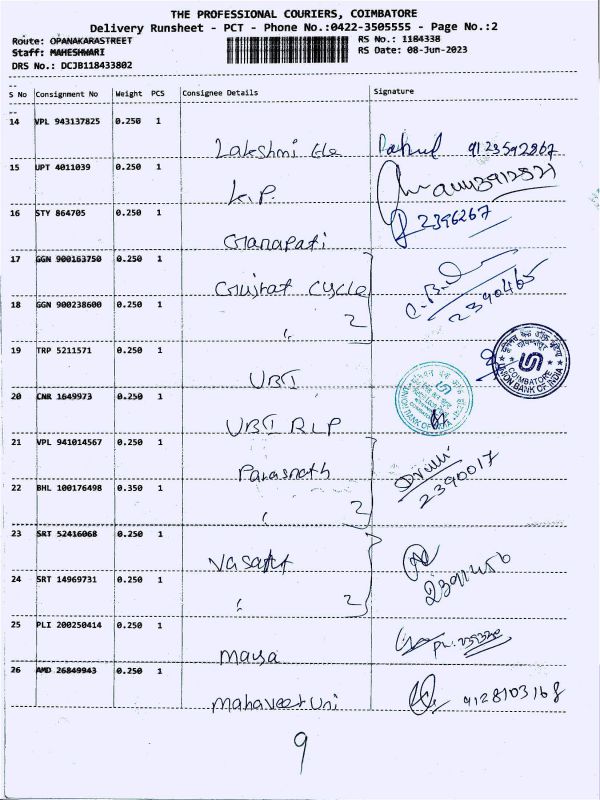 THE PROFESSIONAL COURIERS, COIMBATORE
Delivery Runsheet - PCT - Phone No.:0422-3505555 - Page No.:2
Route: OPANAKARASTREET RS No.: 1184338
Staff: MAHESHWARI RS Date: 08-Jun-2023
DRS No.: DCJB118433802
S No Consignment No Weight PCS Consignee Details Signature
14 VPL 943137825 0.250 1
Lakshmi Ele Rahul 9123592867
15 UPT 4011039 0.250 1
K.P.
16 STY 864705 0.250 1 2396267
Ganapati
17 GGN 900163750 0.250 1
Gujrat Cycle 2390465
18 GGN 900238600 0.250 1
" 2
19 TRP 5211571 0.250 1
UBI UNION BANK OF INDIA COIMBATORE
20 CNR 1649973 0.250 1
UBI RLP
21 VPL 941014567 0.250 1
Parasnath 2390017
22 BHL 100176498 0.350 1
" 2
23 SRT 52416068 0.250 1
Vasant
24 SRT 14969731 0.250 1
" 2
25 PLI 200250414 0.250 1
Maya
26 AMD 26849943 0.250 1
Mahaveer Uni 9128103168
9